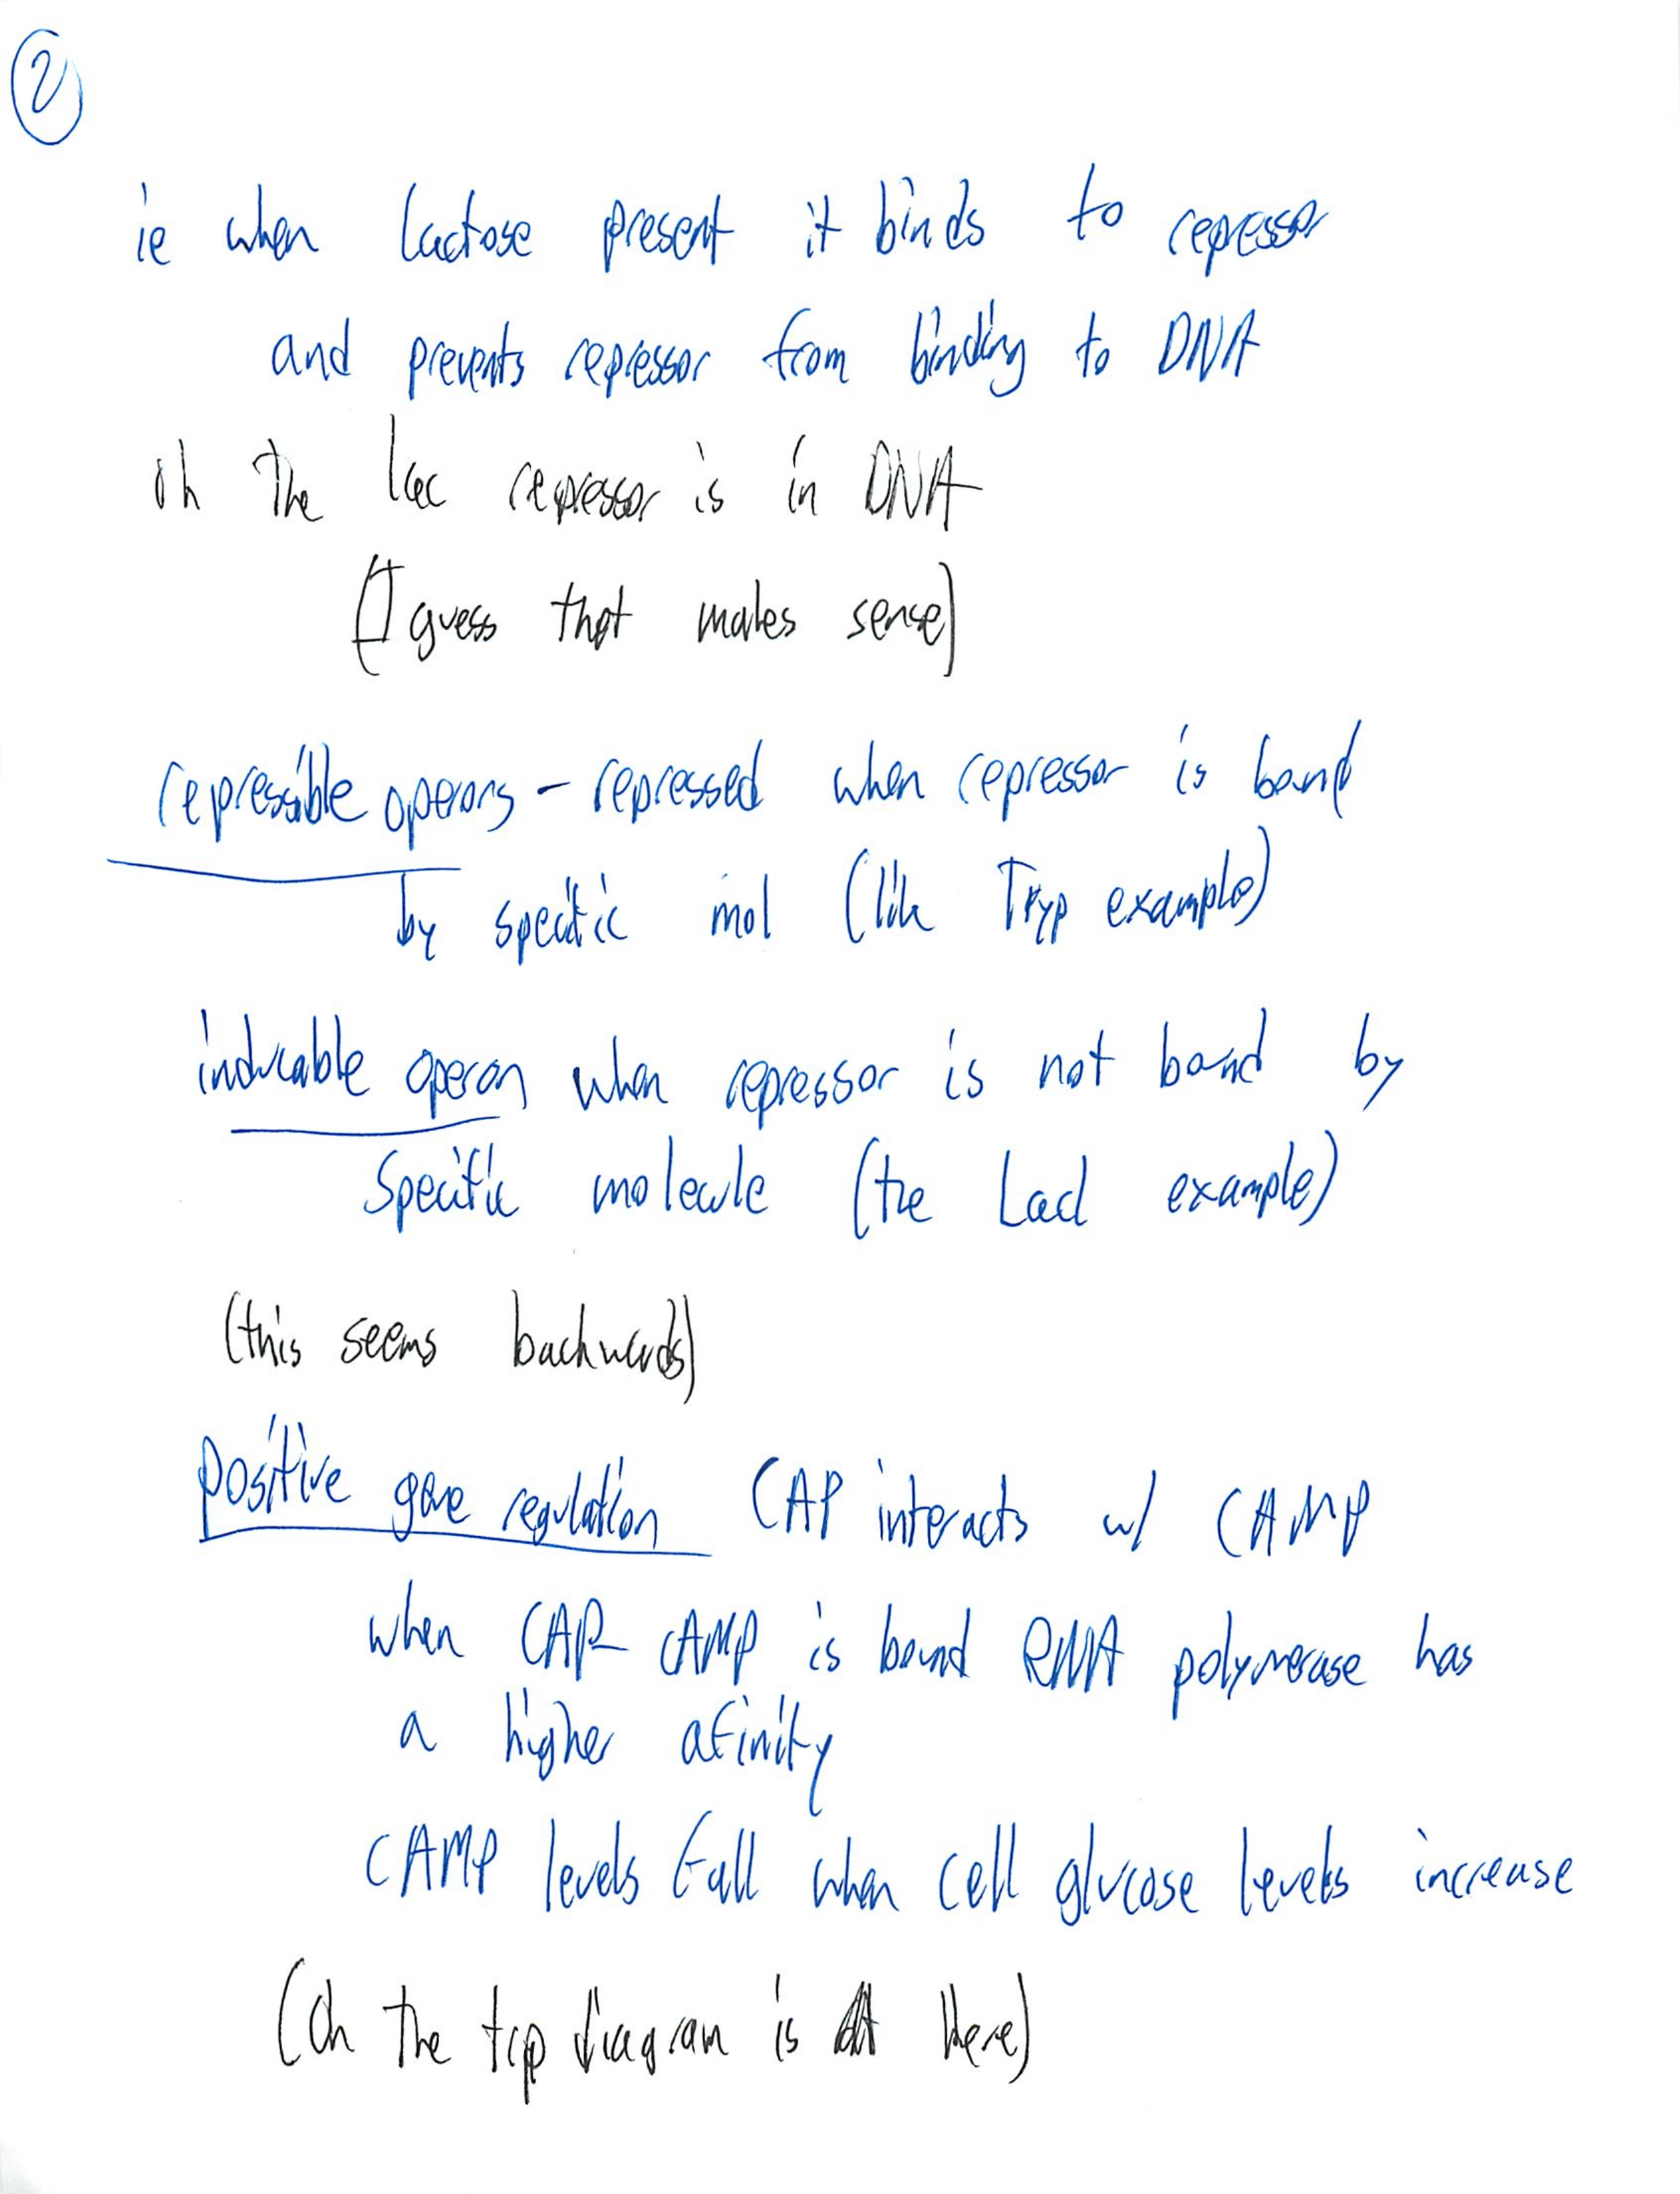 2
ie when lactose present it binds to repressor
and prevents repressor from binding to DNA
oh the lac repressor is in DNA
(I guess that makes sense)
repressible operons - repressed when repressor is bound
by specific mol (like Tryp example)
inducable operon when repressor is not bound by
specific molecule (the Lacl example)
(this seems backwards)
positive gene regulation CAP interacts w/ CAMP
when CAP-cAMP is bound RNA polymerase has
a higher afinity
CAMP levels fall when cell glucose levels increase
(Oh the trp diagram is here)